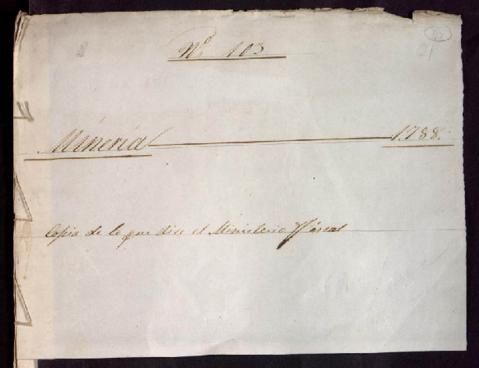 Nº 103
Minería 1788.
Copia de lo que dice el Ministerio Fiscal